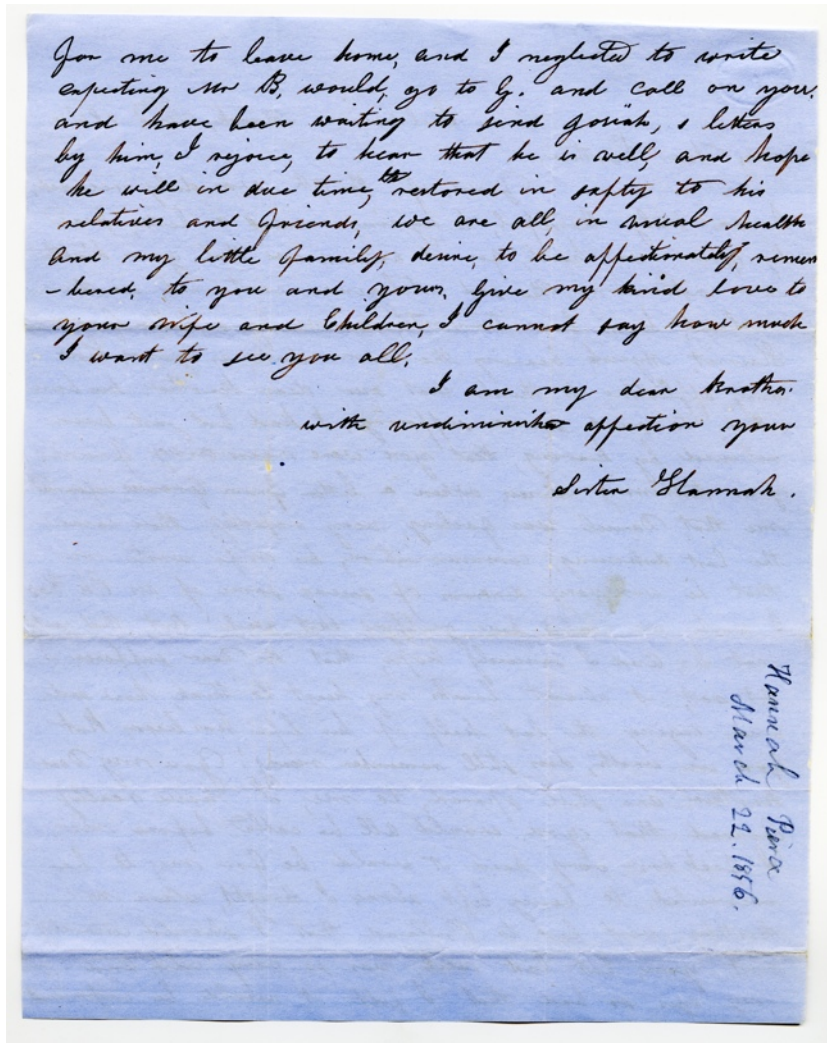 for me to leave home, and I neglected to write
expecting Mr B, would, go to G. and call on you,
and have been waiting to send Josiah, s letters
by him, I rejoice, to hear that he is well, and hope
he will in due time, be restored in safty to his
relatives and friends, we are all, in usual health
and my little family, desire, to be affectionately, remem
-bered, to you and yours, Give my kind love to
your wife and Children, I cannot say how much
I want to see you all,
I am my dear Brother
with undiminished affection your
Sister Hannah.
Hannah Pierce
March 22. 1856.